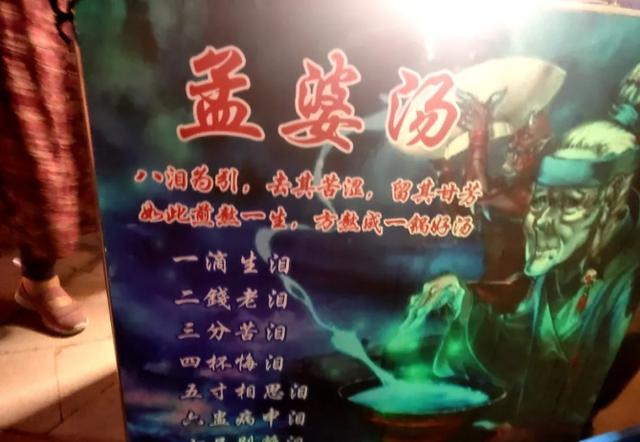 孟婆汤
八泪为引，去其苦涩，留其甘芳
如此煎熬一生，方熬成一锅好汤
一滴生泪
二錢老泪
三分苦泪
四杯悔泪
五寸相思泪
六盅病中泪